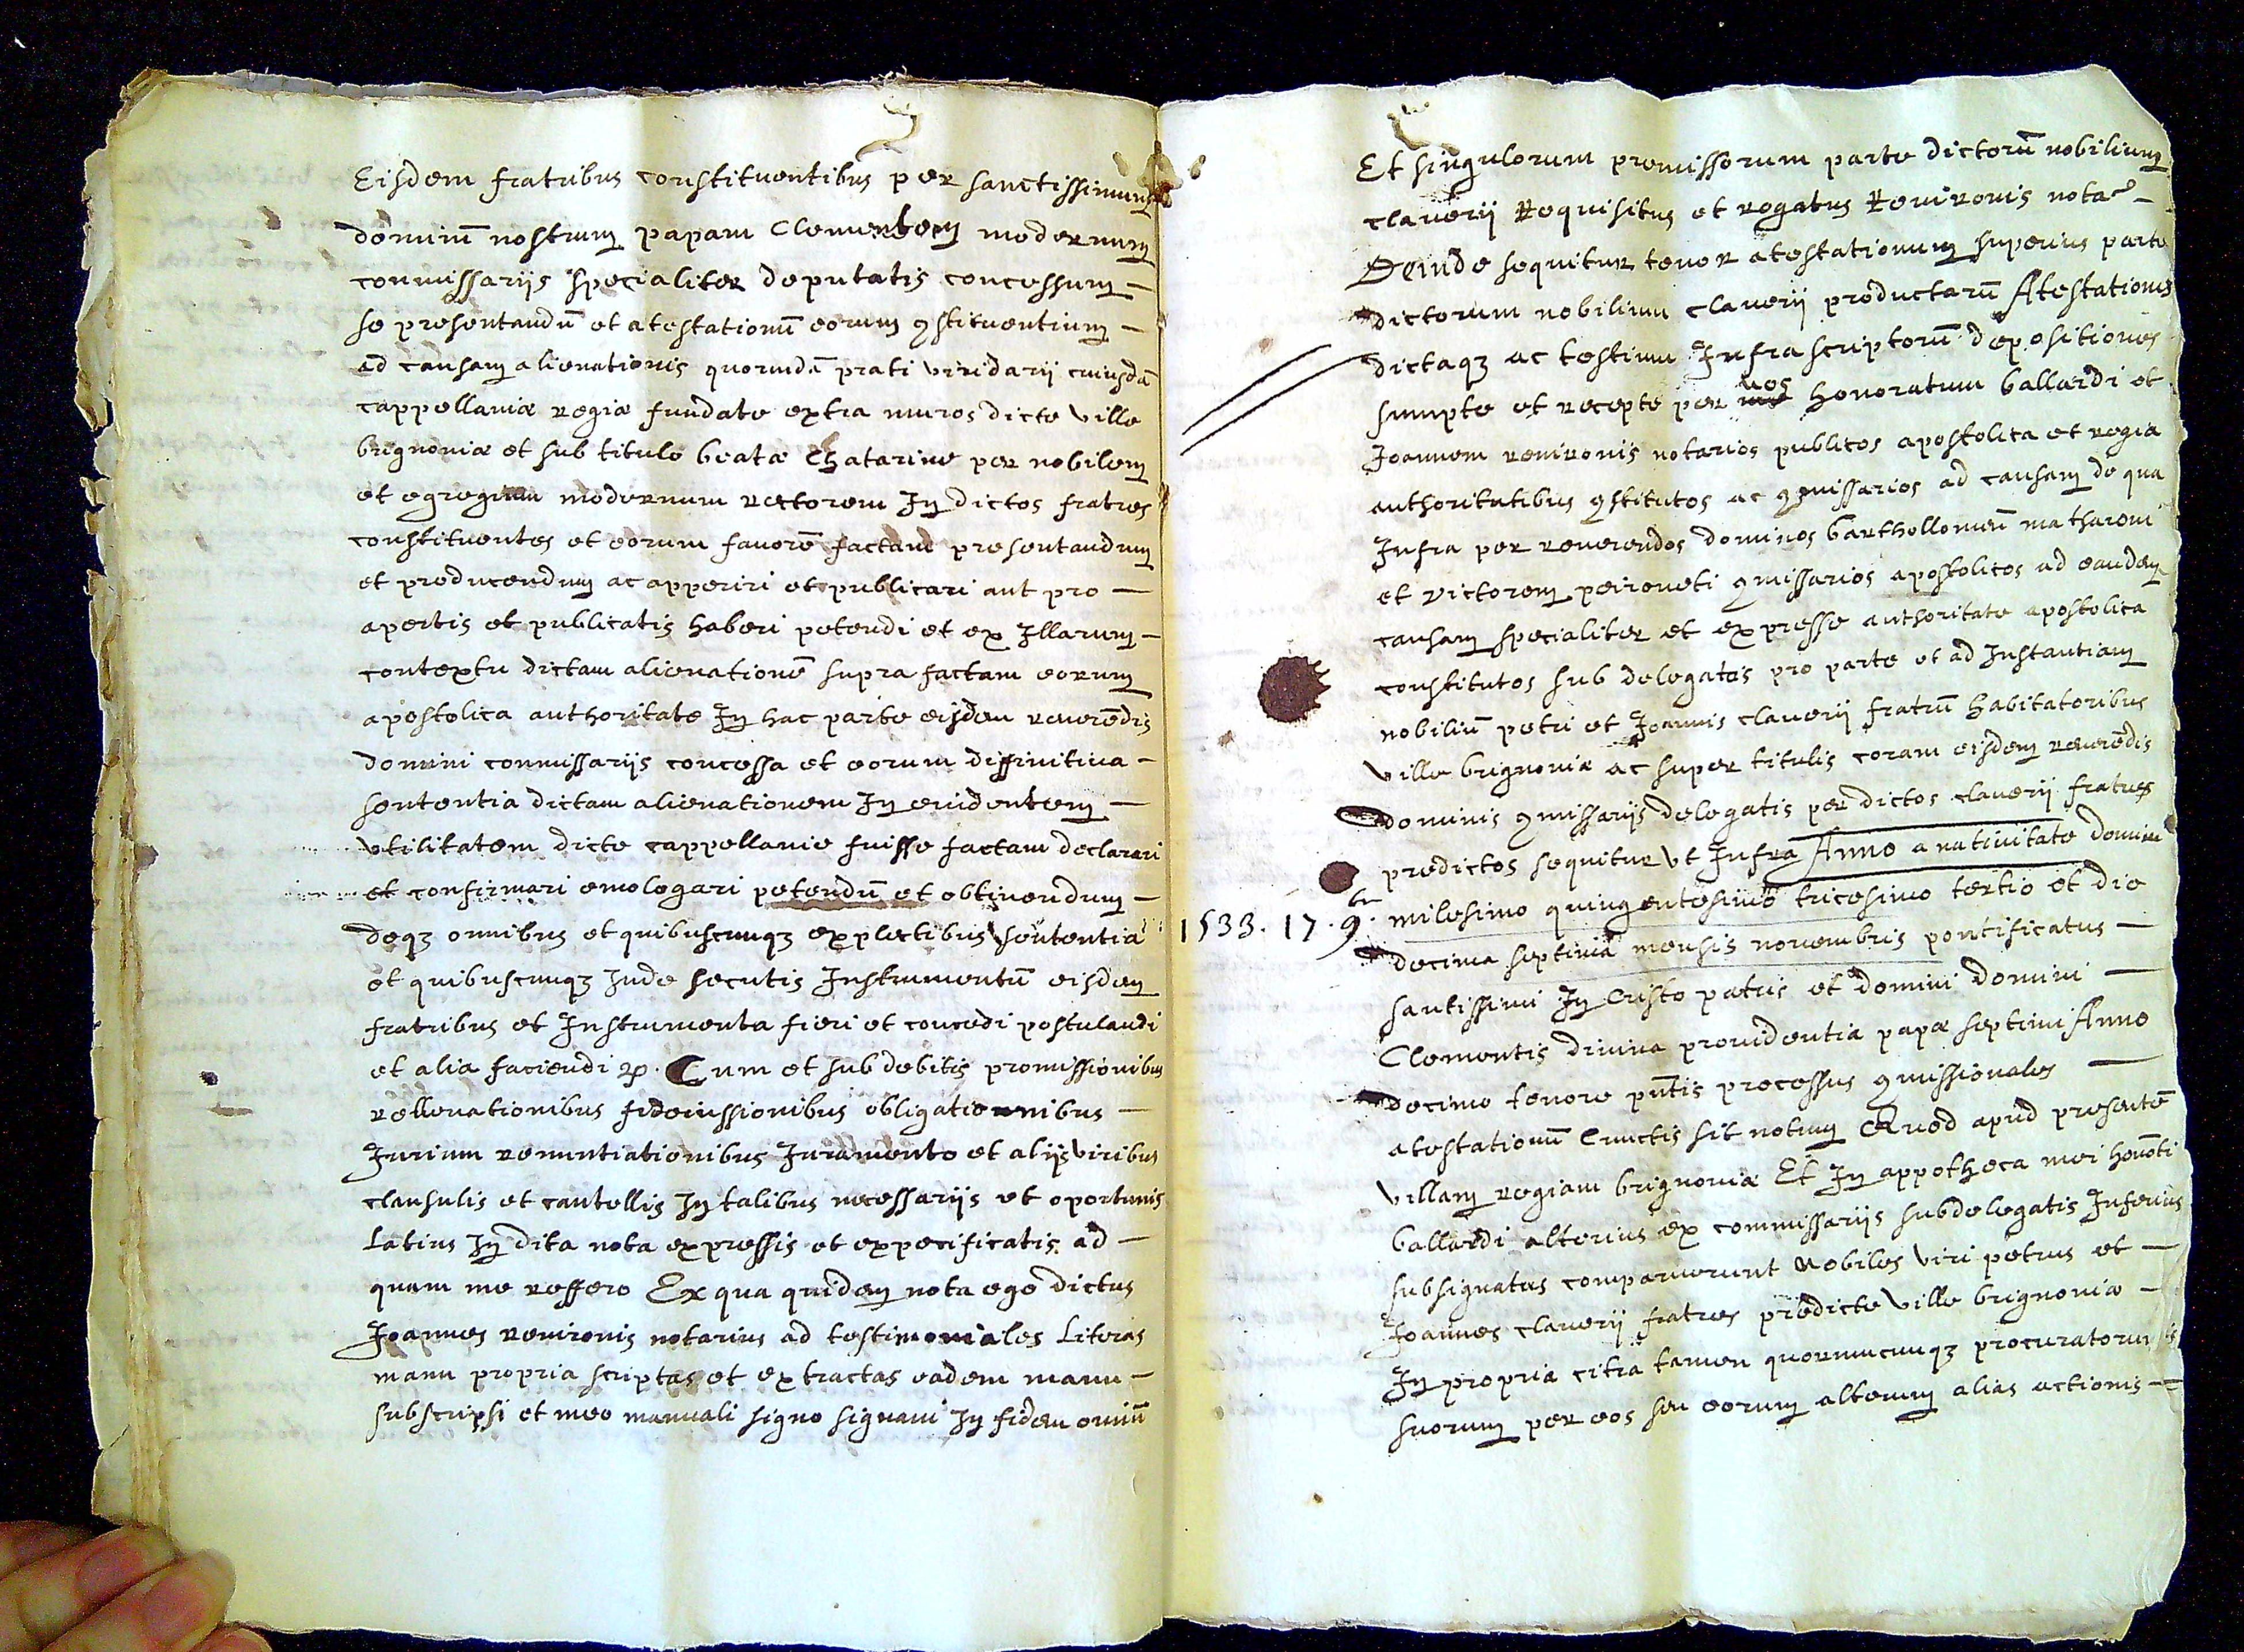 Eisdem fratribus constituentibus per sanctissimum
dominū nostrum papam Clementem modernum
commissariis specialiter deputatis concessum —
se presentandū et atestationū eorum ꝯstituentium —
ad causam alienationis quorundā prati viridarii cuiusdā
cappellaniæ regiæ fundate extra muros dicte ville
brignoniæ et sub titulo beatæ Chatarine per nobilem
et egregium modernum rectorem In dictos fratres
constituentes et eorum favorē factam presentandum
et producendum ac apperiri et publicari aut pro —
apertis et publicatis haberi petendi et ex Illarum —
contextu dictam alienationē supra factam eorum
apostolica authoritate In hac parte eisdem reverēdis
domini commissariis concessa et eorum diffinitiva —
sententia dictam alienationem In evidentem —
utilitatem dicte cappellanie fuisse factam declarari
et confirmari emologari petendū et obtinendum —
deqꝫ omnibus et quibuscumqꝫ expletibus sententia
et quibuscumqꝫ Inde secutis Instrumentū eisdem
fratribus et Instrumenta fieri et concedi postulandi
et alia faciendi Cum et sub debitis promissionibus
rellevationibus fideiussionibus obligationnibus —
Jurium renuntiationibus Juramento et aliis viribus
clausulis et cautellis In talibus necessariis et oportunis
Latius In dita nota expressis et expecificatis ad —
quam me reffero Ex qua quidem nota ego dictus
Joannes revironis notarius ad testimoniales Literas
manu propria scriptas et extractas eadem manu —
subscripsi et meo manuali signo signavi In fidem omniū
Et singulorum premissorum parte dictorū nobilium
claverii Requisitus et rogatus Revironis nota —
Deinde sequitur tenor atestationum superius parte
dictorum nobilium claverii productarū Atestationes
dictaqꝫ ac testium Infrascriptorū depositiones
sumpte et recepte per nos honoratum ballardi et
Joannem revironis notarios publicos apostolica et regia
authoritatibus ꝯstitutos ac ꝯmissarios ad causam de qua
Infra per reverendos dominos barthollomeū matharoni
et victorem peironeti ꝯmissarios apostolicos ad eandem
causam specialiter et expresse authoritate apostolica
constitutos sub delegatas pro parte et ad Instantiam
nobiliū petri et Joannis claverii fratrū habitatoribus
ville brignoniæ ac super titulis coram eisdem reverēdis
dominis ꝯmissariis delegatis per dictos claverii fratres
predictos sequitur ut Infra Anno a nativitate domini
1533. 17. 9br milesimo quingentesimo tricesimo tertio et die
decima septima mensis novembris pontificatus —
santissimi In Cristo patris et domini domini —
Clementis divina providentia papæ septimi Anno
decimo tenore pn̄tis processus ꝯmissionales —
atestationū Cunctis sit notum Quod apud presentē
villam regiam brignoniæ Et In appotheca mei honōti
ballardi alterius ex commissariis subdelegatis Inferius
subsignatus comparuerunt Nobiles viri petrus et —
Joannes claverii fratres predicte ville brignoniæ —
In propria citra tamen quorumcumqꝫ procuratorum
suorum per eos seu eorum alterum alias actionis —